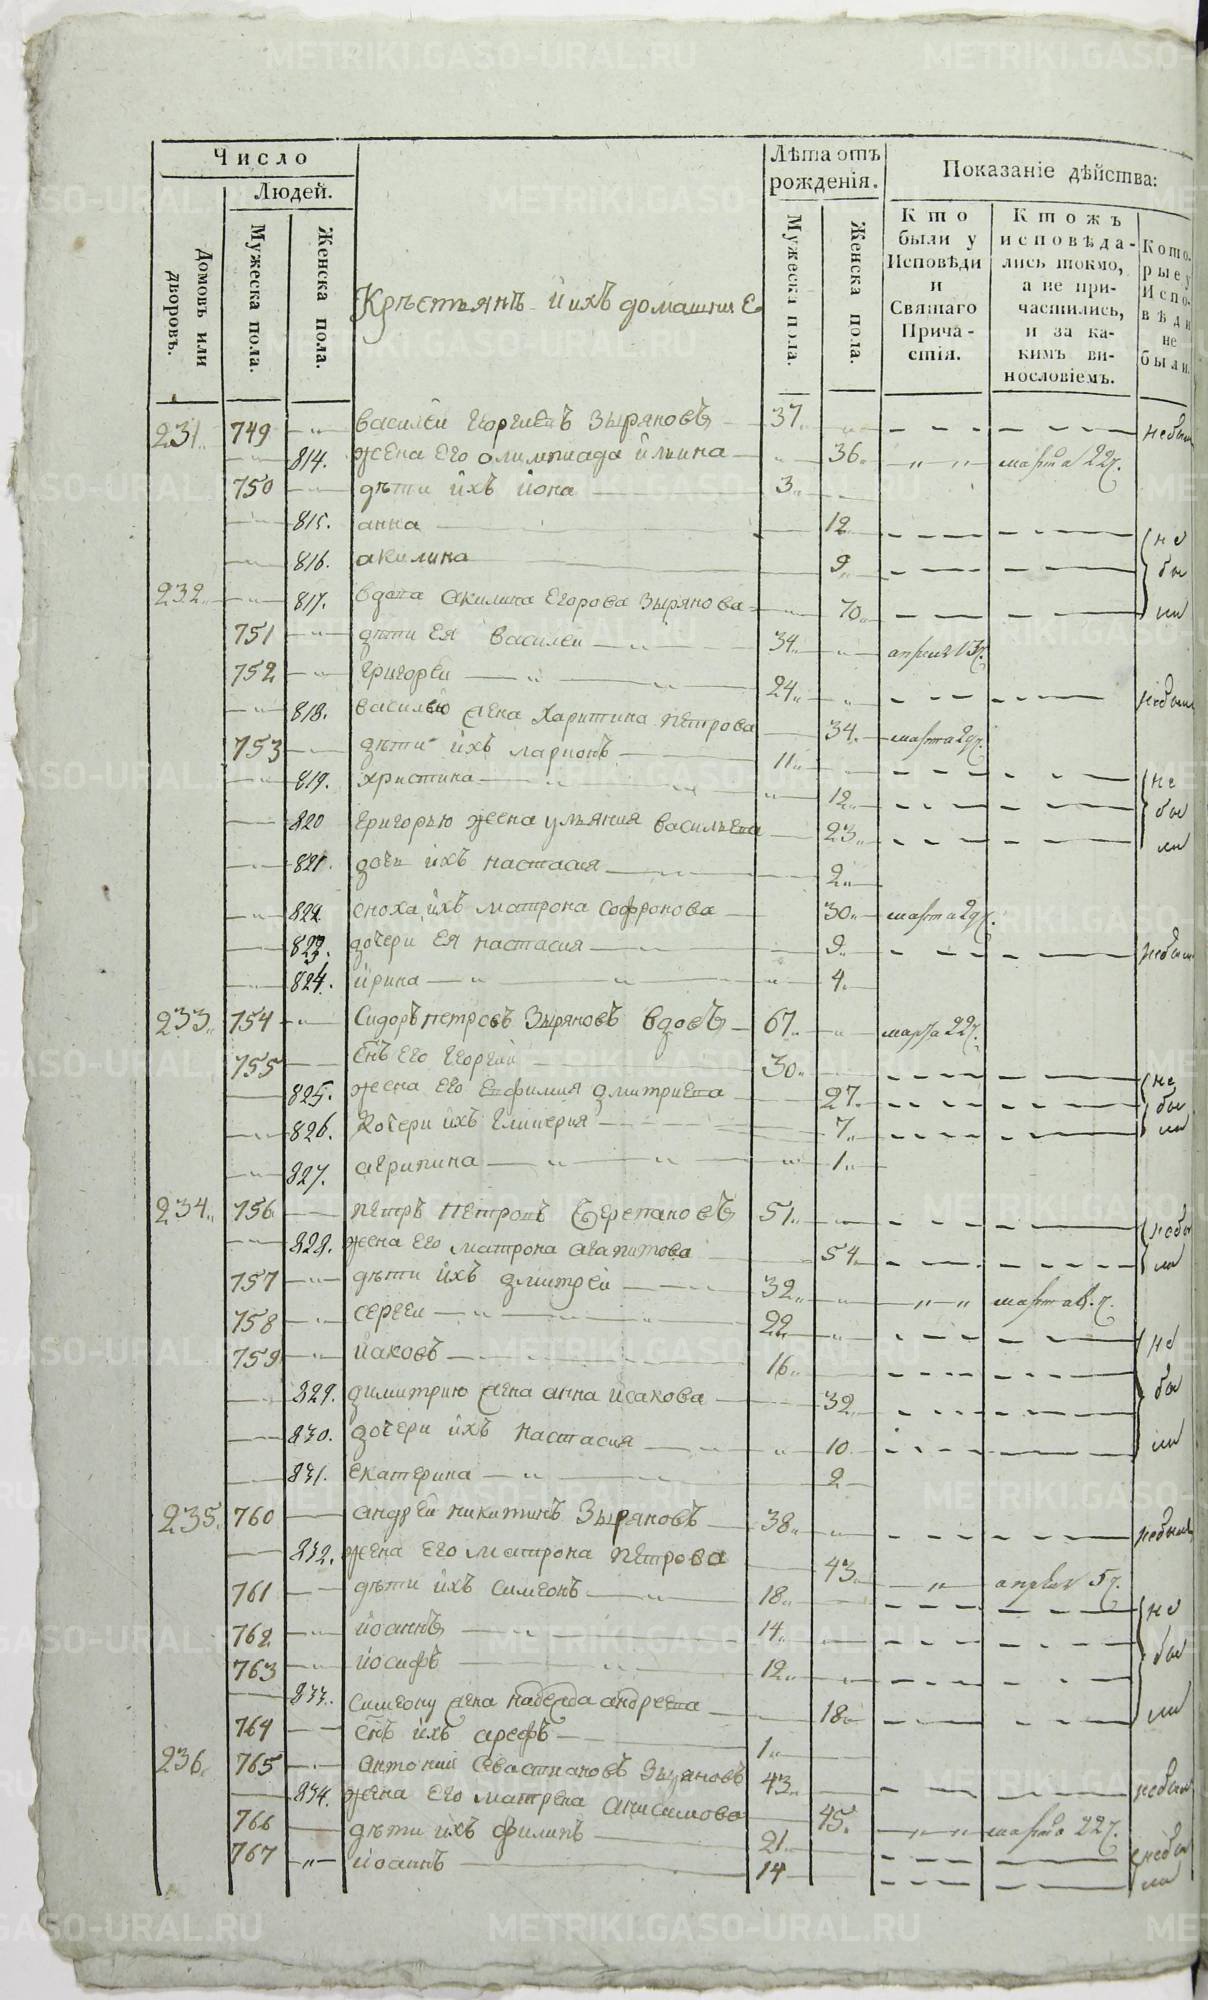 Число
Людей.
Домовъ или дворовъ.
Мужеска пола.
Женска пола.
Крѣстьянъ и ихъ домашние
Лѣта отъ рожденія.
Мужеска пола.
Женска пола.
Показаніе дѣйства:
Кто были у Исповѣди и Святаго Причастія.
Ктожъ исповѣдались токмо, а не причастились, и за какимъ винословіемъ.
Которые у Исповѣди не были.
231. 749 василей георгиевъ Зыряновъ 37. небыли
814. жена его олимпиада ильина 36. марта 22.
750 дѣти ихъ иона 3
815. анна 12
816. акилина 9
232. 817. вдова акилина Егорова Зырянова 70. не были
751 дѣти ея василей 34. апреля 13.
752 григорей 24. небыли
818. василью жена харитина петрова 34. марта 29.
753 дѣти ихъ ларионъ 11
819. христина 12
820 григорью жена ульяния васильева 23. не были
821. дочь ихъ настасия 2
822 сноха ихъ матрона софронова 30 марта 29.
823. дочери ея настасия 9. небыли
824. ирина 4.
233. 754 Сидоръ петровъ Зыряновъ вдовъ 67. марта 22.
755 снъ его георгий 30.
825. жена его евфимия дмитриева 27. не были
826. дочери ихъ гликерия 7
827. агрипина 1
234. 756 петръ петровъ Черепановъ 51.
828. жена его матрона агапитова 54. небыли
757 дѣти ихъ дмитрей 32. марта
758 сергеи 22
759 иаковъ 16
829. димитрию жена анна исакова 32 не были
830. дочери ихъ настасия 10
831. екатерина 2
235. 760 андрей никитинъ Зыряновъ 38. небыли
832. жена его матрона петрова 43. апреля 5
761 дѣти ихъ симеонъ 18
762 иоаннъ 14
763 иосифъ 12
833. симеону жена надежда андреева 18 не были
764 снъ ихъ арефъ 1
236. 765 антоний Севастиановъ Зыряновъ 43 небыли
834. жена его матрена анисимова 45. марта 22.
766 дѣти ихъ филипъ 21
767 иоаннъ 14 небыли
METRIKI.GASO-URAL.RU